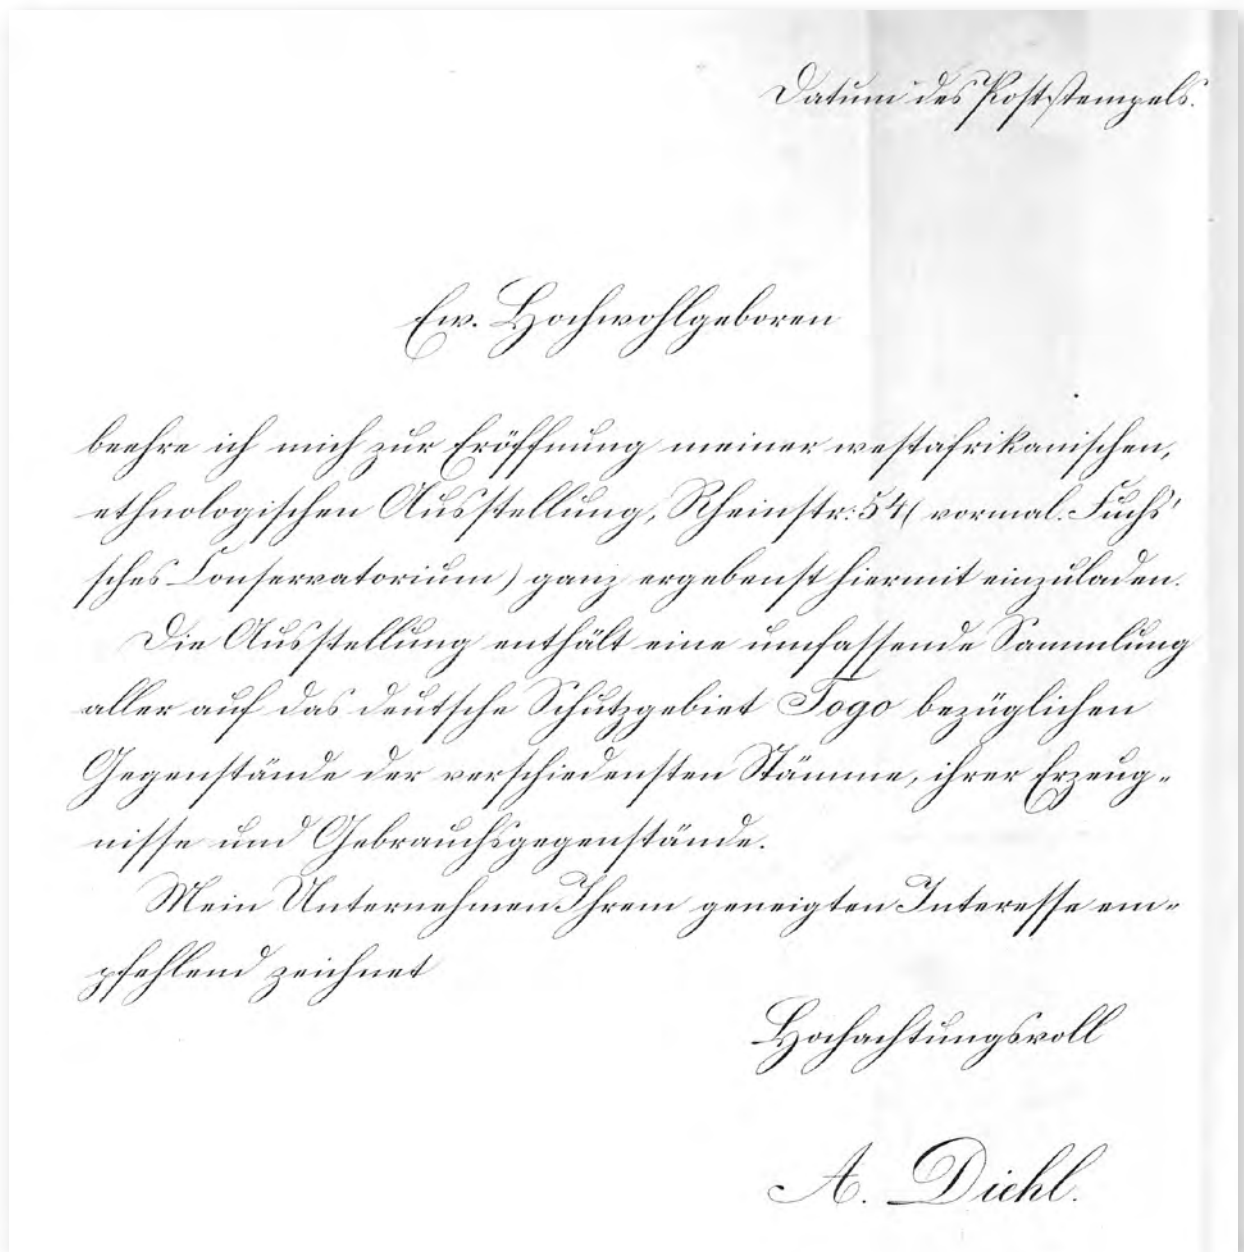 Datum des Poststempels.
Ew. Hochwohlgeboren
beehre ich mich zur Eröffnung meiner westafrikanischen,
ethnologischen Ausstellung, Rheinstr: 54 ( vormal. Fuchs'
sches Conservatorium) ganz ergebenst hiermit einzuladen.
Die Ausstellung enthält eine umfassende Sammlung
aller auf das deutsche Schutzgebiet Togo bezüglichen
Gegenstände der verschiedensten Stämme, ihrer Erzeug-
nisse und Gebrauchsgegenstände.
Mein Unternehmen Ihrem geneigten Interesse em-
pfehlend zeichnet
Hochachtungsvoll
A. Diehl.